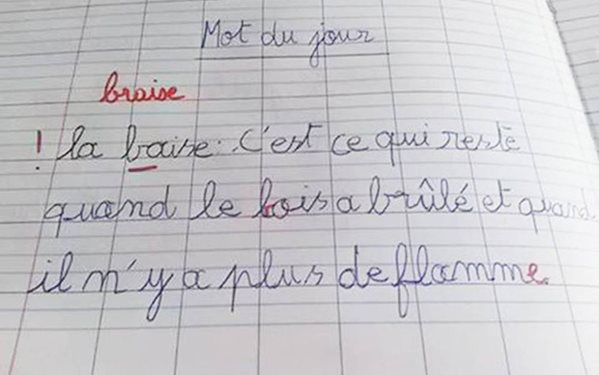 Mot du jour
braise
! la baise : c'est ce qui reste
quand le bois a brûlé et quand
il n'y a plus de flamme.